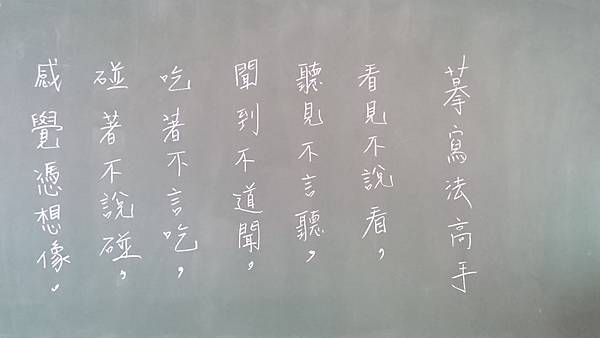 摹寫法高手
看見不說看，
聽見不言聽，
聞到不道聞，
吃著不言吃，
碰著不說碰，
感覺憑想像。